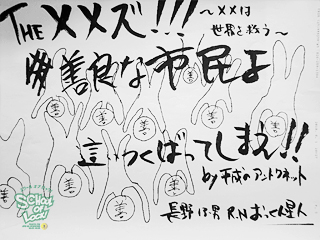 THE メメズ!!!
〜メメは
世界を救う〜
善良な市民よ
善
善
善
善
善
善
善
善
善
這いつくばってしまえ!!
by 平成のアントワネット
長野 13 男 R.N おっくん星人
SCHOOL OF LOCK!